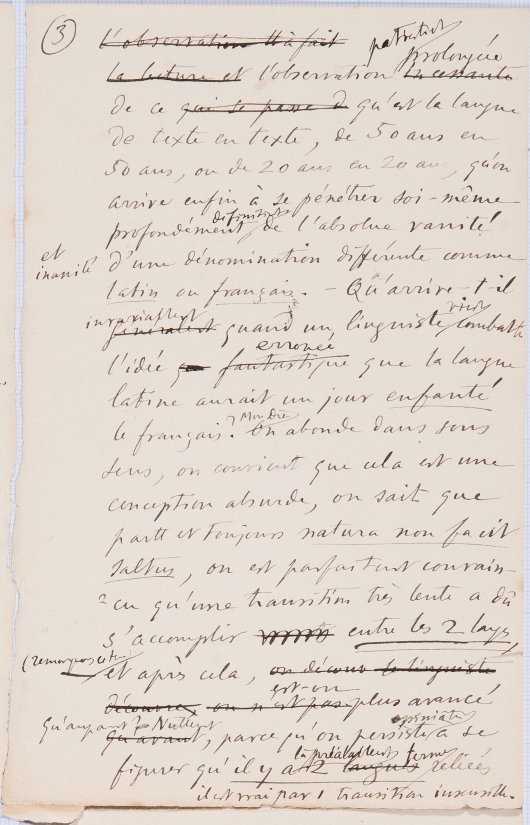 3
l'observation tt à fait
la lecture et l'observation prolongée incessante
de ce qui se passe d qu'est la langue
de texte en texte, de 50 ans en
50 ans, ou de 20 ans en 20 ans, qu'on
arrive enfin à se pénétrer soi-même
profondément, de l'absolue vanité
et inanité
d'une dénomination différente comme
latin ou français. – Qu'arrive-t-il
généralt quand un linguiste vient combattre
l'idée erronée fantastique que la langue
latine aurait un jour enfanté
le français? On abonde dans son
sens, on convient que cela est une
conception absurde, on sait que
partt et toujours natura non facit
saltus, on est parfaitent convain-
cu qu'une transition très lente a dû
s'accomplir entre les 2 lgages,
et après cela, on découv le linguiste
est-on
découvre on n'est pas plus avancé
qu'avant? Nullemt
qu'avant, parce qu'on persiste à se
figurer qu'il y a là 2 langues termes reliées
il est vrai par 1 transition insensible.